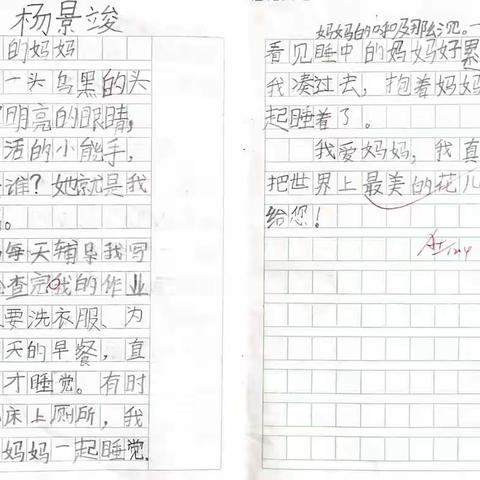 杨景竣
的妈妈
一头乌黑的头
明亮的眼睛,
活的小能手,
谁?她就是我
。
每天辅导我写
查完我的作业
要洗衣服、为
天的早餐,直
才睡觉。有时
床上厕所,我
妈妈一起睡觉.
妈妈的呼吸那么沉。一
看见睡中的妈妈好累
我凑过去,抱着妈妈
起睡着了。
我爱妈妈,我真
把世界上最美的花儿
给您!
A+